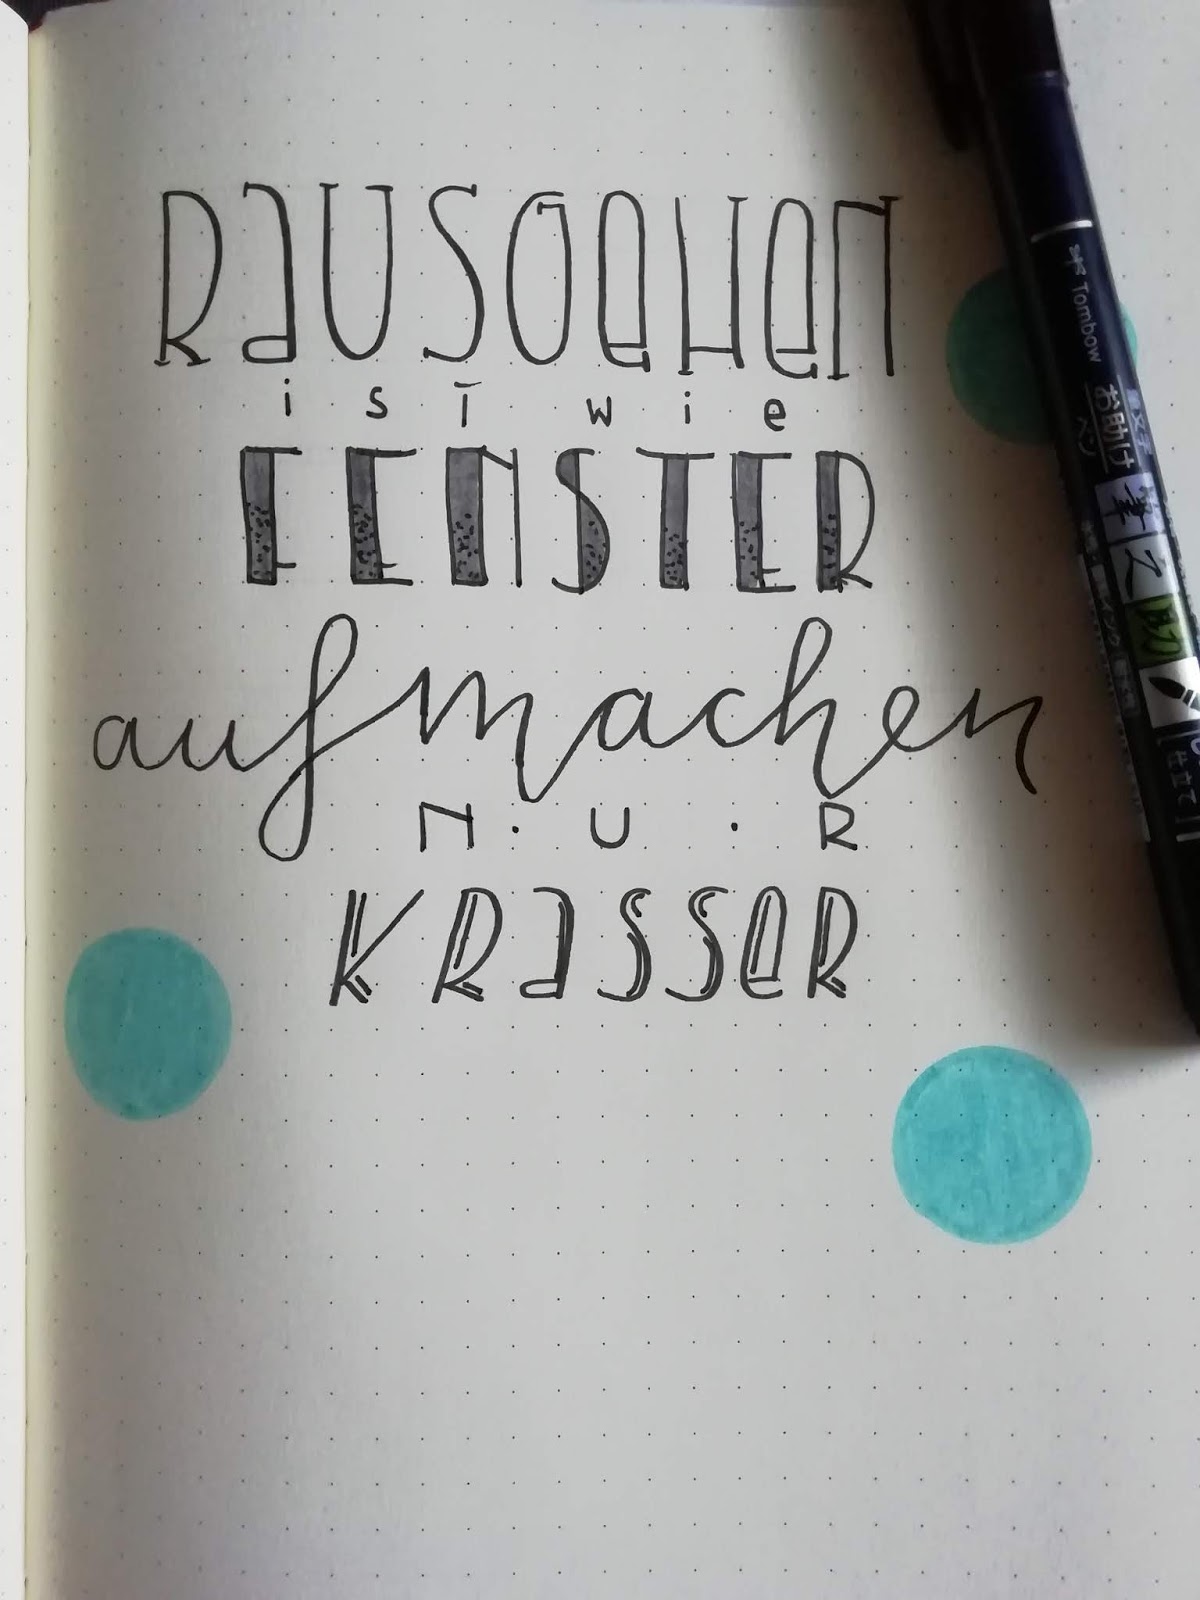 RaUSGeHen
isT wie
FENSTER
aufmachen
N·U·R
KRasseR
Tombow
お助け
ペン